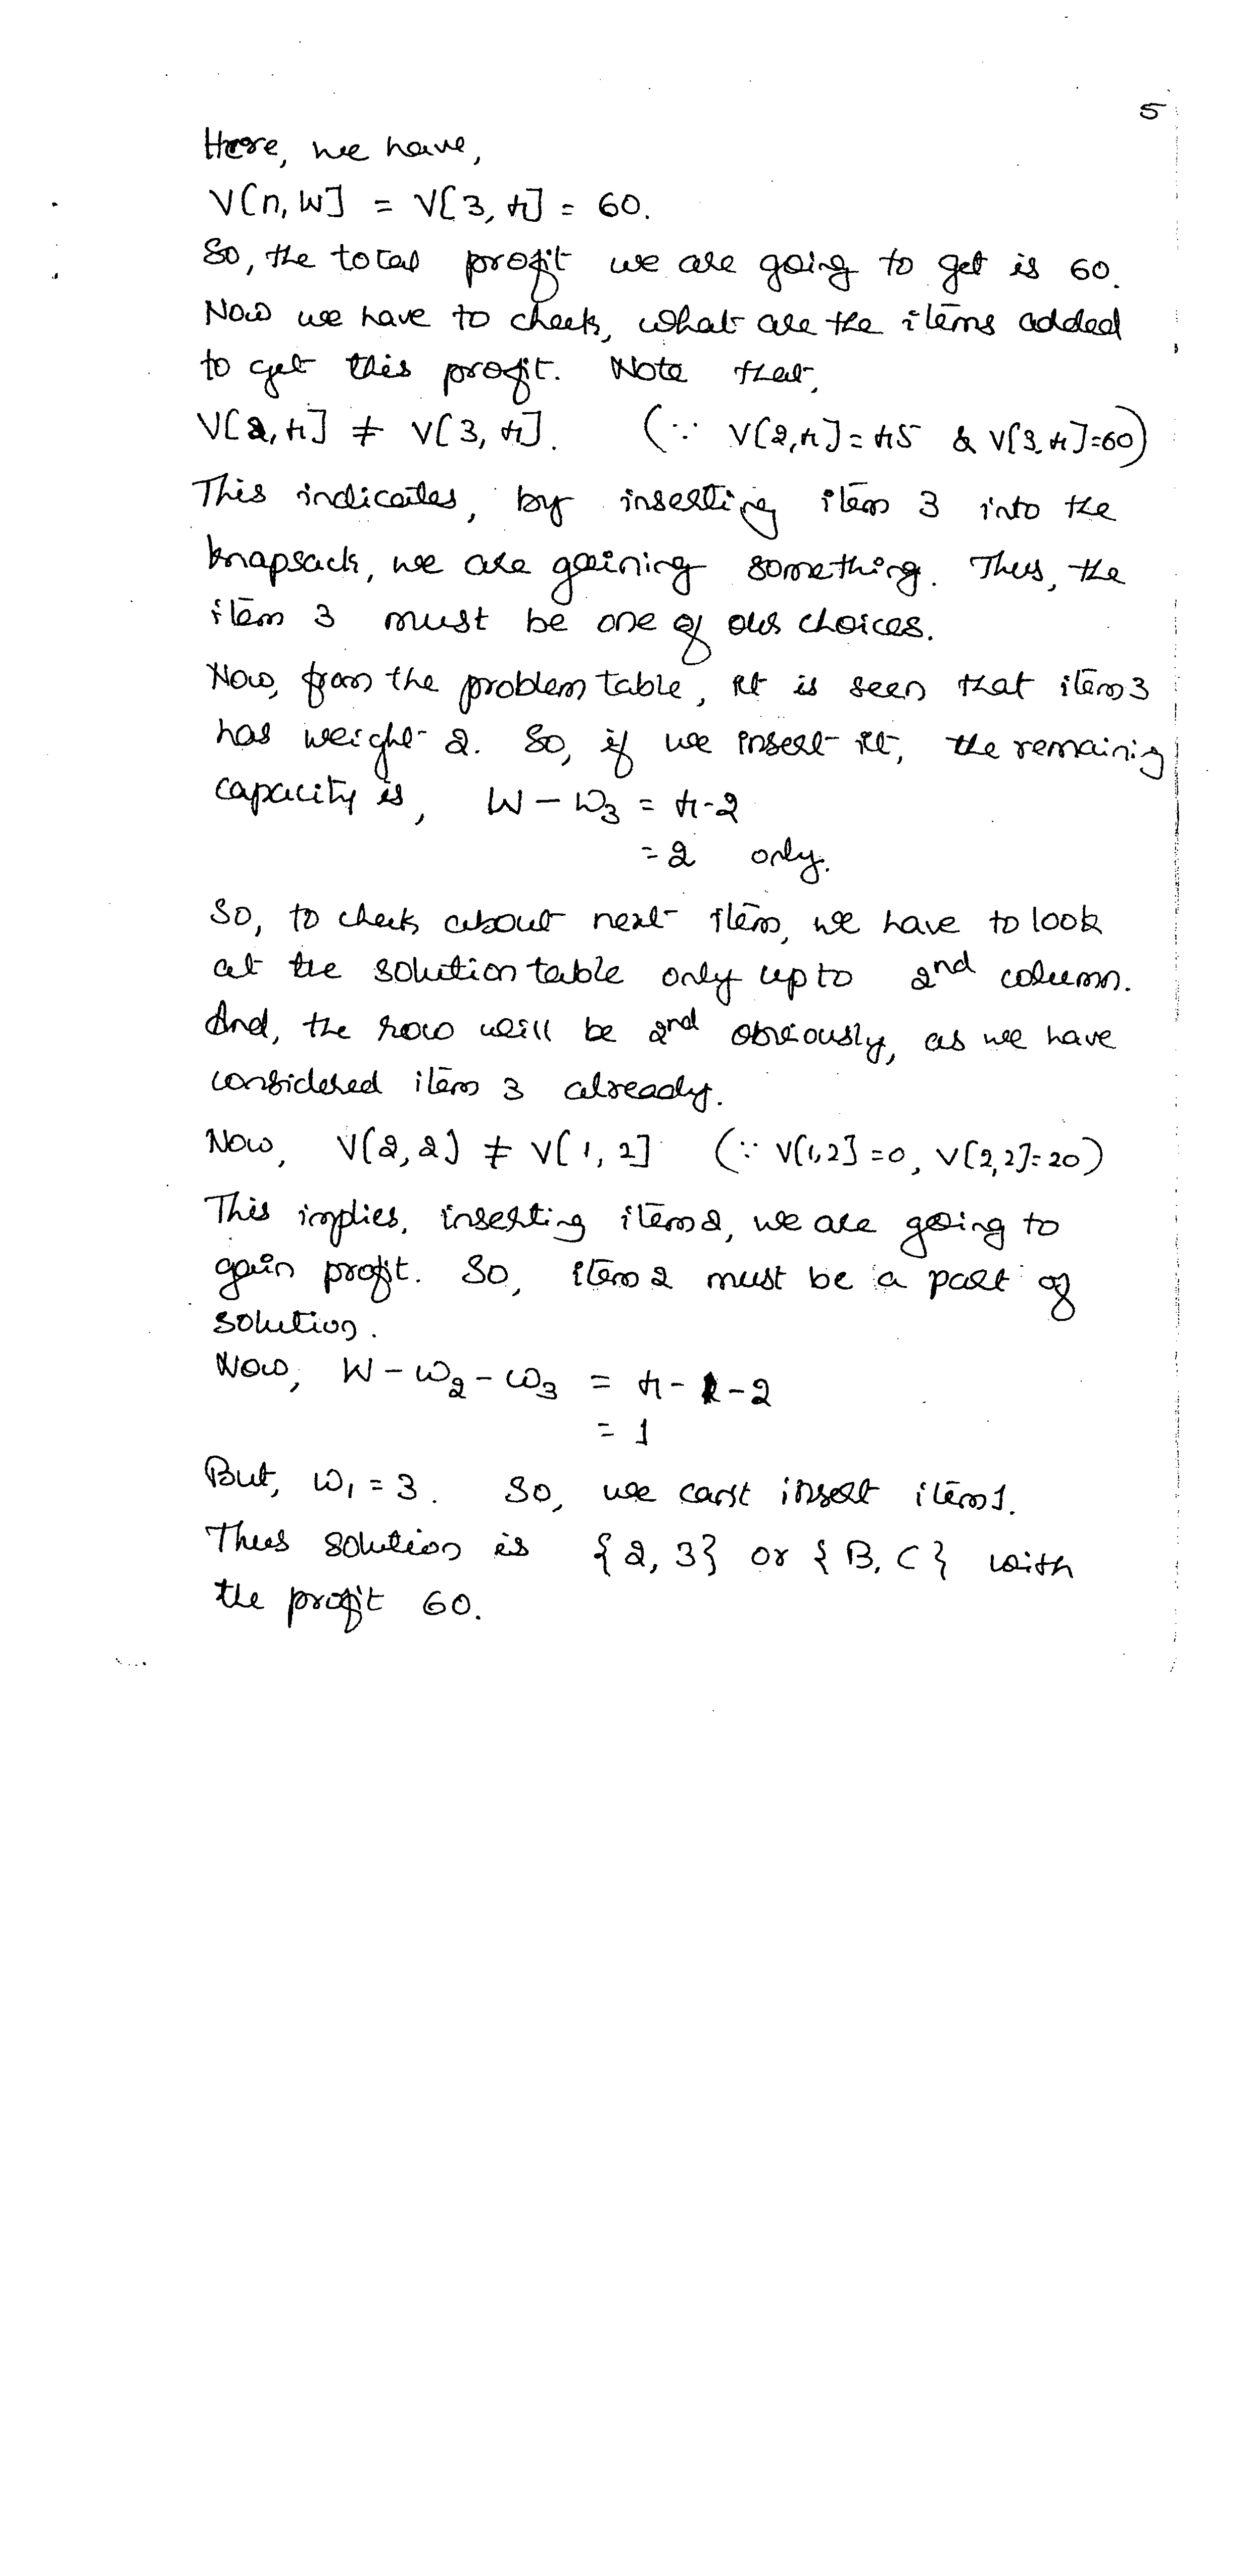 5
Here, we have,
V[n, W] = V[3, 4] = 60.
So, the total profit we are going to get is 60.
Now we have to check, what are the items added
to get this profit. Note that,
V[2, 4] ≠ V[3, 4]. (∵ V[2,4] = 45 & V[3,4]=60)
This indicates, by inserting item 3 into the
knapsack, we are gaining something. Thus, the
item 3 must be one of our choices.
Now, from the problem table, it is seen that item 3
has weight 2. So, if we insert it, the remaining
capacity is, W - w₃ = 4-2
= 2 only.
So, to check about next item, we have to look
at the solution table only upto 2nd column.
And, the row will be 2nd obviously, as we have
considered item 3 already.
Now, V[2, 2] ≠ V[1, 2] (∵ V[1,2] = 0, V[2,2]=20)
This implies, inserting item 2, we are going to
gain profit. So, item 2 must be a part of
solution.
Now, W - w₂ - w₃ = 4 - 1 - 2
= 1
But, w₁ = 3. So, we can't insert item 1.
Thus solution is {2, 3} or {B, C} with
the profit 60.